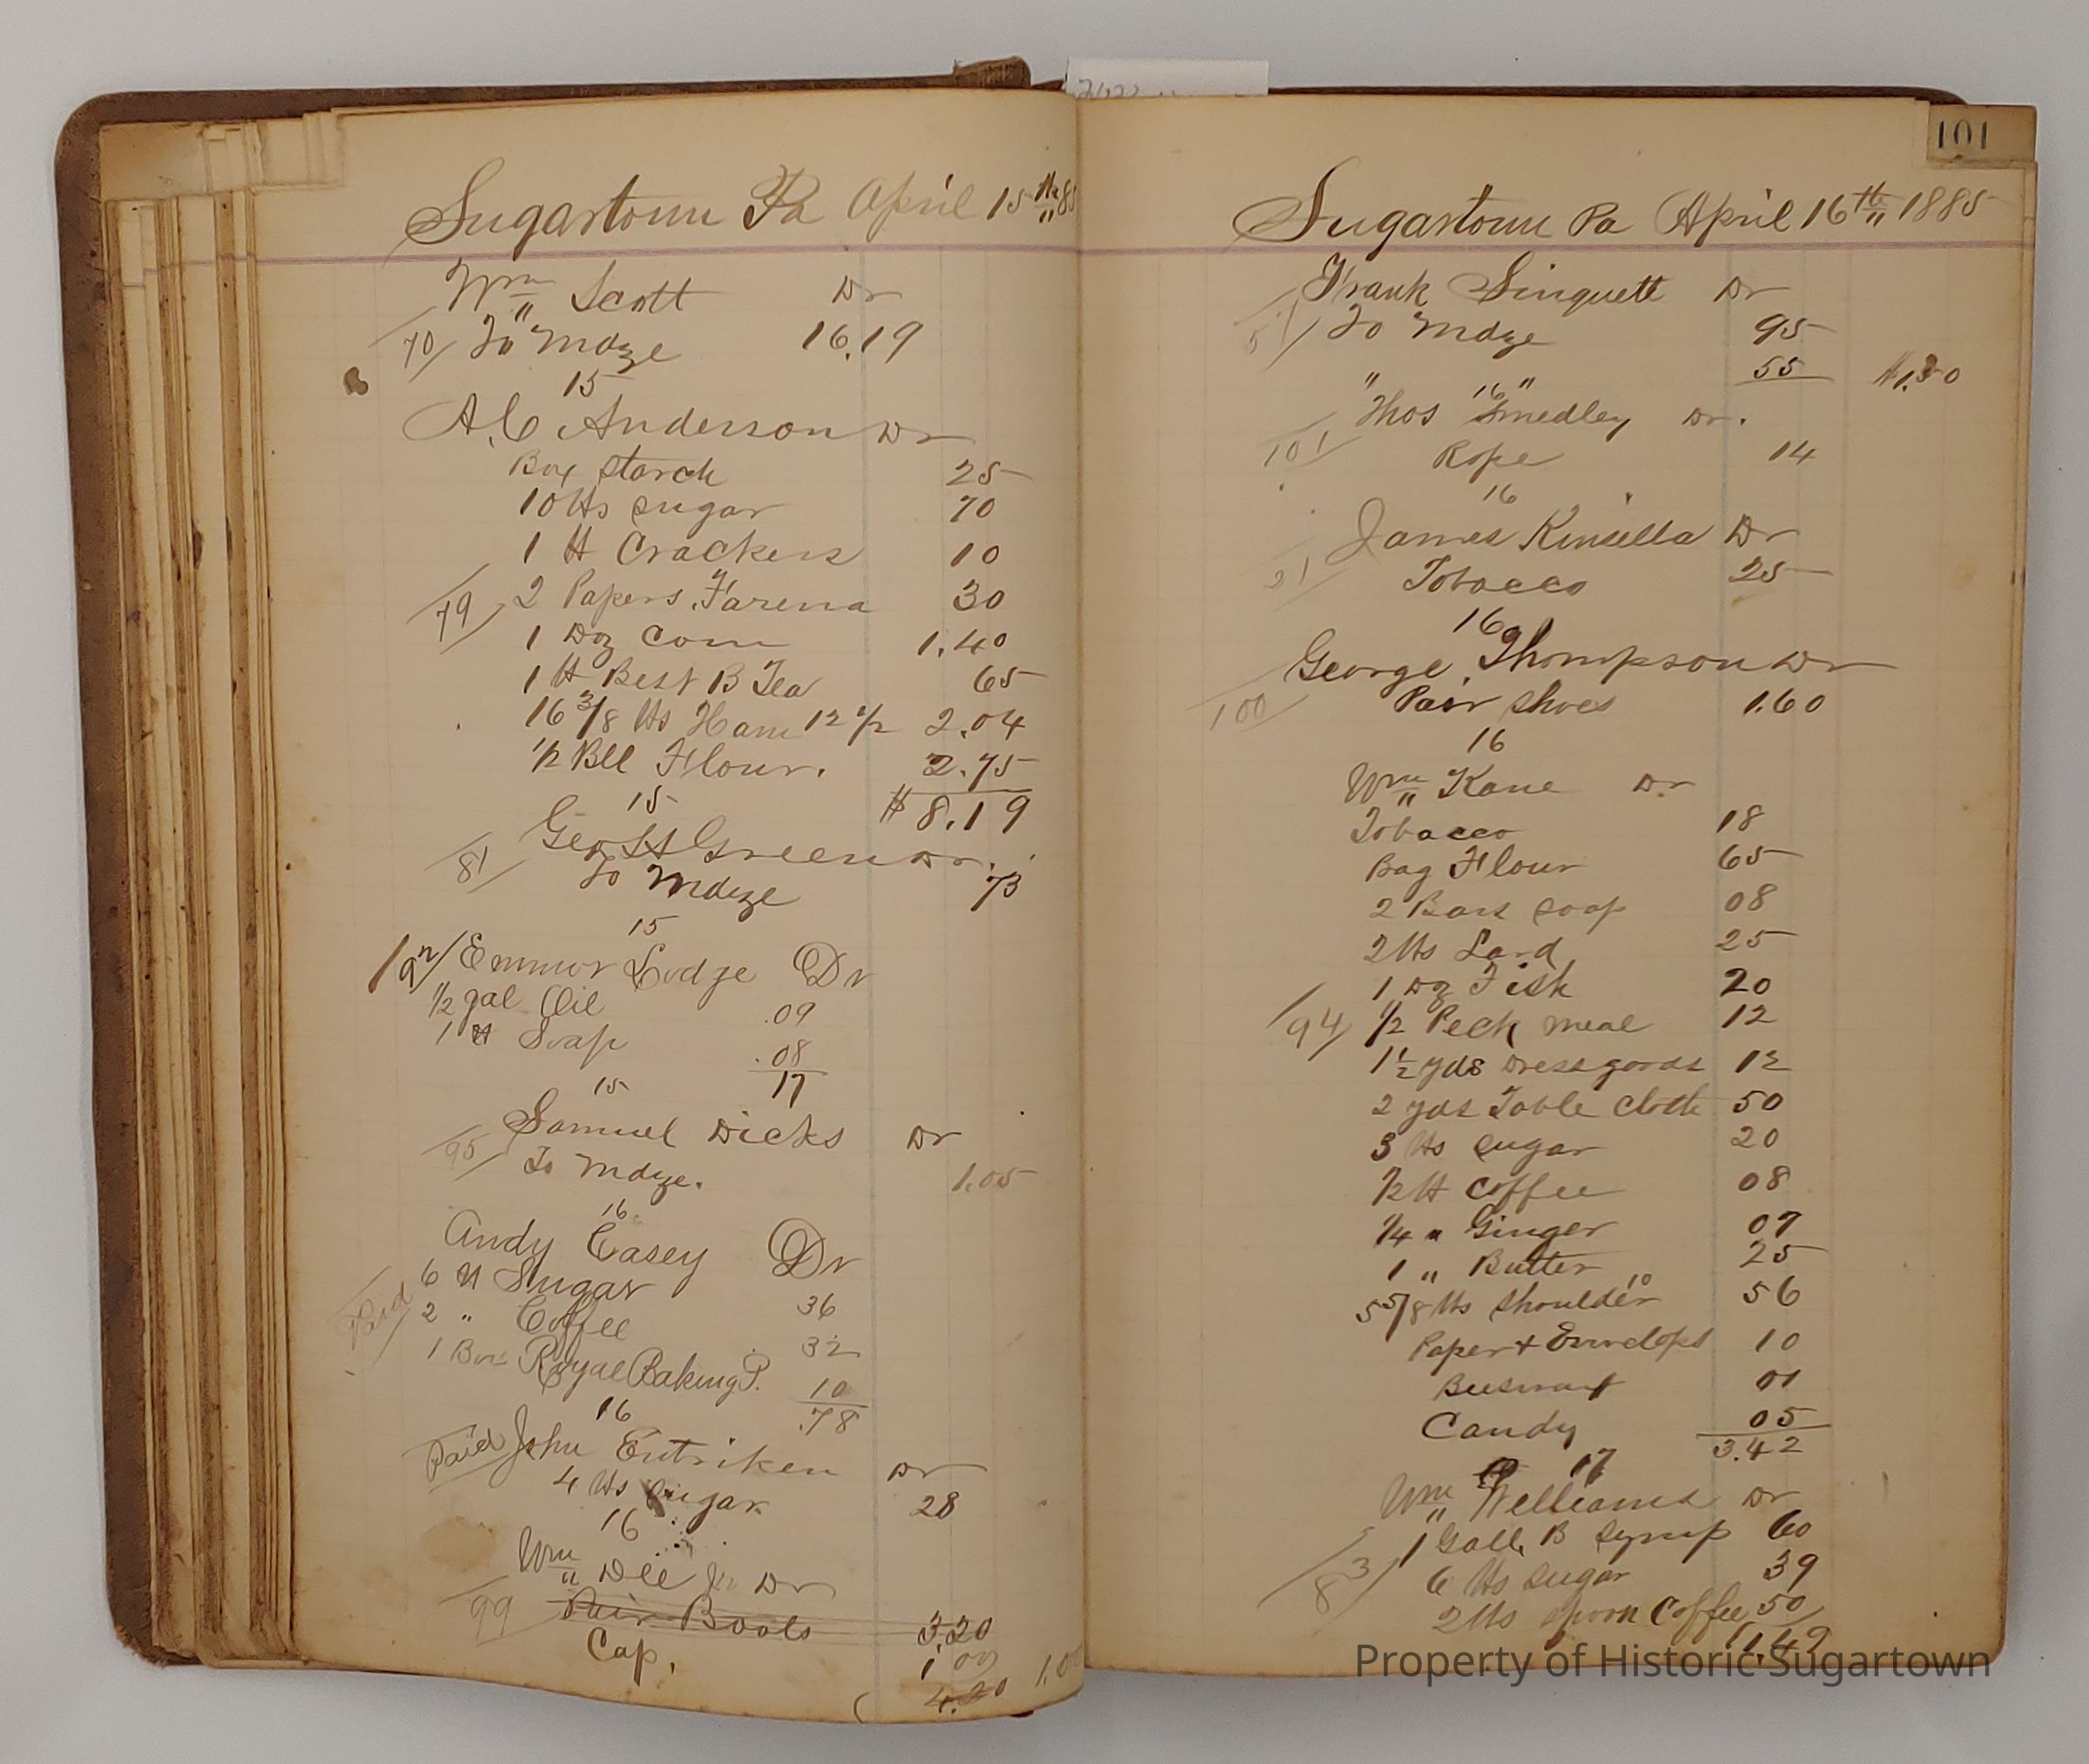 Sugartown Pa April 15th 85
Wm Scott Dr
70/ To Mdze 16.19
15
A. C Anderson Dr
Box Starch 25
10 lts Sugar 70
1 lt Crackers 10
79/ 2 Papers Farena 30
1 Doz Corn 1.40
1 lt Best B Tea 65
16 3/8 lts Ham 12 1/2 2.04
1/2 Bll Flour. 2.75
15 $8.19
Geo H Green Dr.
81/ To Mdze 73
15
92/ Emmor Lodge Dr
1/2 gal Oil .09
1 lt Soap .08
17
15
Samuel Dicks Dr
95/ To Mdze. 1.05
16
Andy Casey Dr
6 lt Sugar 36
Paid 2 " Coffee 32
1 Box Royal Baking P. 10
16 .78
Paid John Entriken Dr
4 lts Sugar 28
16
Wm Dee Jr Dr
99 Pair Boots 3.20
Cap, 1 00 1.0
4.20
101
Sugartown Pa April 16th 1885
Frank Singuett Dr
To Mdze 95
" " 55 $1.50
16
Thos Smedley Dr.
101 Rope 14
16
James Kinsella Dr
21/ Tobacco 25
16
George Thompson Dr
100 Pair Shoes 1.60
16
Wm Kane Dr
Tobacco 18
Bag Flour 65
2 Bars Soap 08
2 lts Lard 25
1 Doz Fish 20
94/ 1/2 Peck meal 12
1 1/2 yds Dress goods 12
2 yds Table Cloth 50
3 lts Sugar 20
1/2 lt Coffee 08
1/4 " Ginger 07
1 " Butter 25
5 5/8 lts Shoulder 10 56
Paper + Envelops 10
Beeswax 01
Candy 05
3.42
17
Wm Williams Dr
1 Gall. B Syrup 60
83/ 6 lts Sugar 39
2 lts Coffee 50
1.49
Property of Historic Sugartown